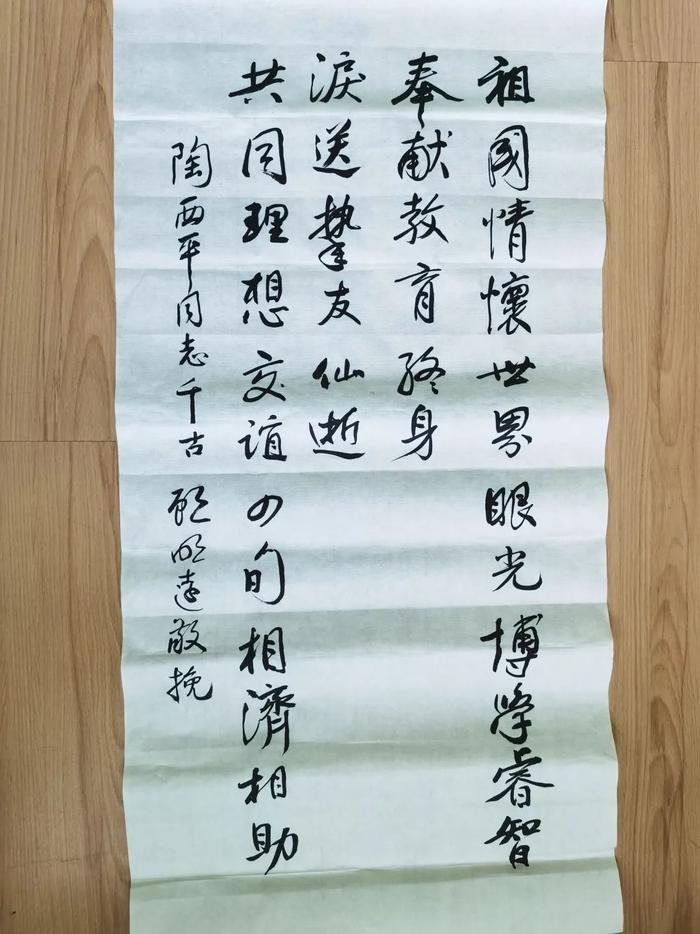 祖國情懷世界眼光博學睿智
奉献教育终身
淚送摯友仙逝
共同理想交谊四旬相濟相助
陶西平同志千古 顾明远敬挽